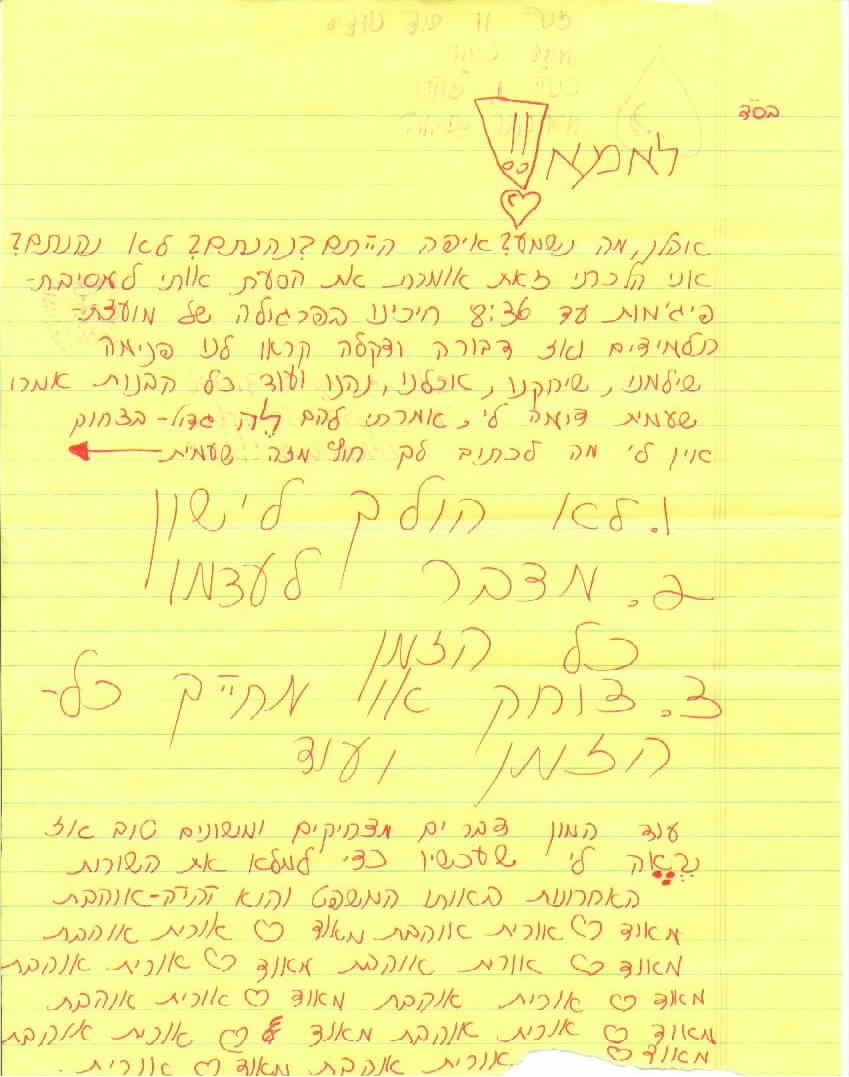 בס"ד
לאמא!!
אוקלן, מה נשמע? איפה הייתם? נהנתם? לא נהנתם?
אני הלכתי זאת אומרת את הסעת אותי למסיבת-
פיג'מות עד 8:36 חיכינו בפרגולה של מועצת-
תלמידים ואז דבורה ודקלה קראו לנו פנימה
שילמנו, שיחקנו, אכלנו, נהננו ועוד כל הבנות אמרו
שעמית דומה לי, אמרתי להם לה גדול- בצחוק
אין לי מה לכתוב לך חוץ מזה שעמית
1. לא הולך לישון
2. מדבר לעצמו
כל הזמן
3. צוחק או מחייך כל-
הזמן ועוד
עוד המון דברים מצחיקים ומשונים טוב אז
נראה לי שעכשיו כדי למלא את השורות
האחרונות באותו המשפט והוא יהיה-אוהבת
מאוד אורית אוהבת מאוד אורית אוהבת
מאוד אורית אוהבת מאוד אורית אוהבת
מאוד אורית אוהבת מאוד אורית אוהבת
מאוד אורית אוהבת מאוד אורית אוהבת
מאוד אורית אוהבת מאוד אורית.